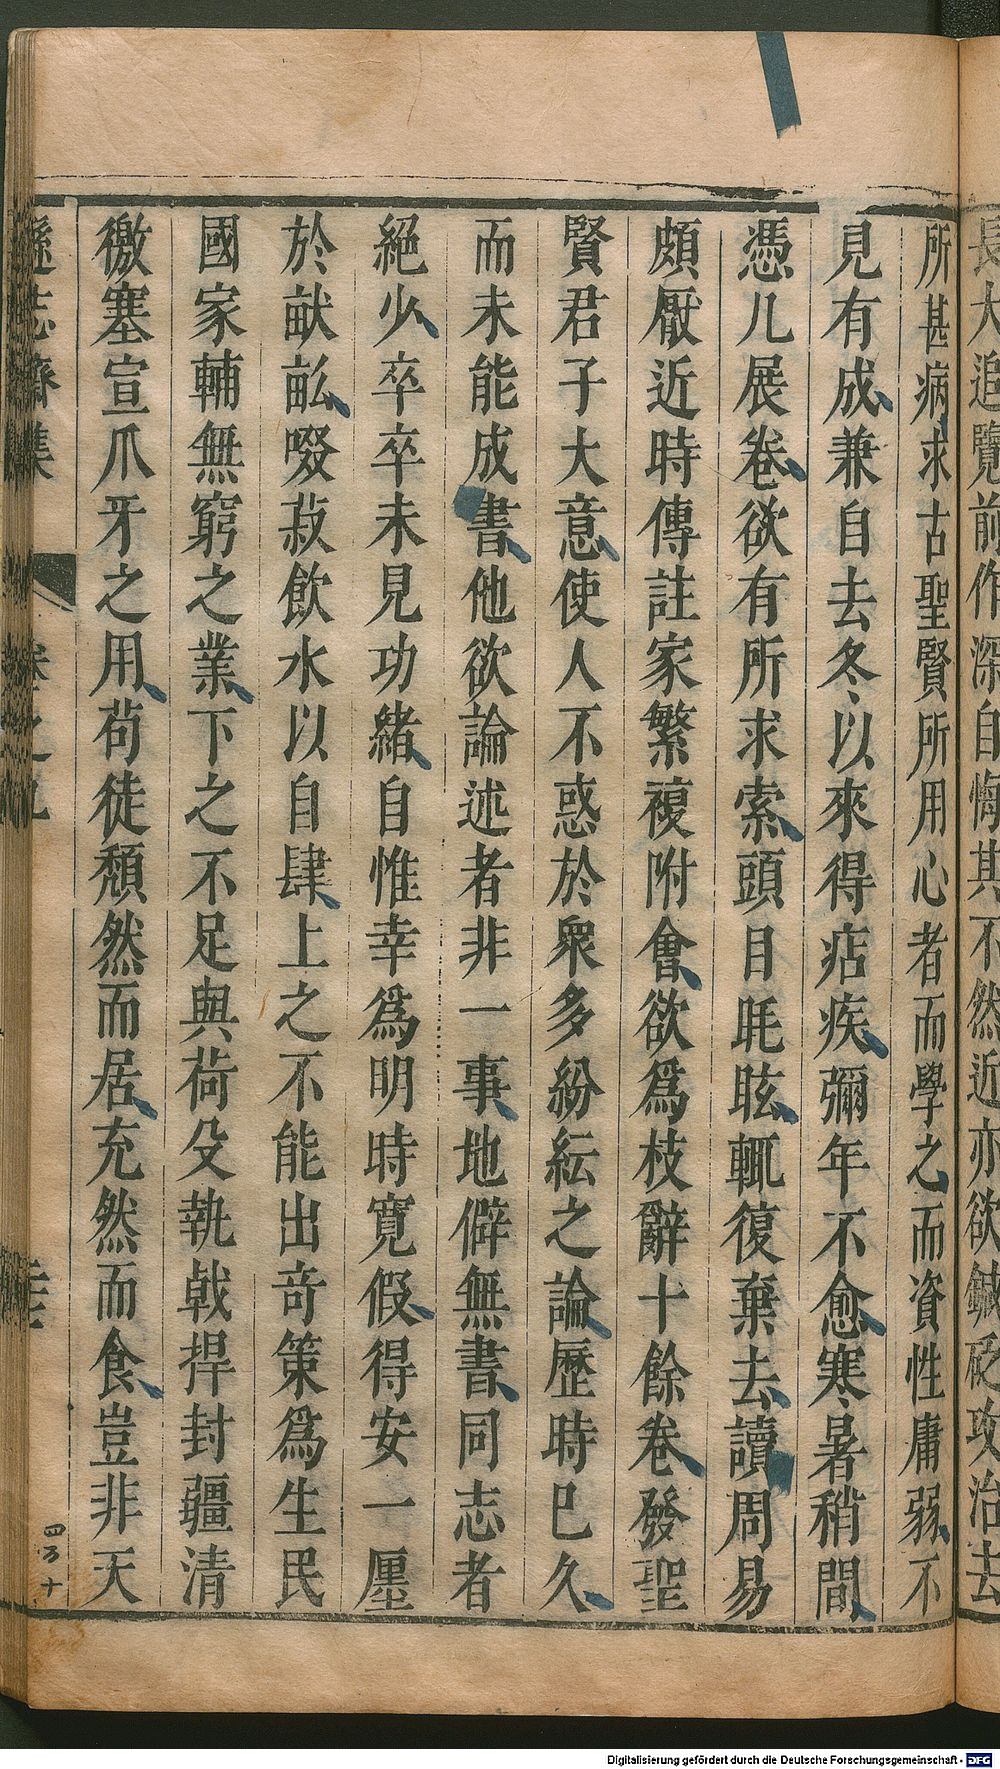 長大追覽前作深自悔其不然近亦欲鍼砭攻治去
所甚病求古聖賢所用心者而學之而資性庸弱不
見有成兼自去冬以來得痁疾彌年不愈寒暑稍間
憑几展卷欲有所求索頭目眊眩輒復棄去讀周易
頗厭近時傳註家繁複附會欲爲枝辭十餘卷發聖
賢君子大意使人不惑於衆多紛紜之論歷時已久
而未能成書他欲論述者非一事地僻無書同志者
絕少卒卒未見功緒自惟幸爲明時寬假得安一廛
於畎畝啜菽飲水以自肆上之不能出奇策爲生民
國家輔無窮之業下之不足與荷殳執戟捍封疆清
徼塞宣爪牙之用苟徒頹然而居充然而食豈非天
遜志齋集
卷之
四万十
Digitalisierung gefördert durch die Deutsche Forschungsgemeinschaft - DFG